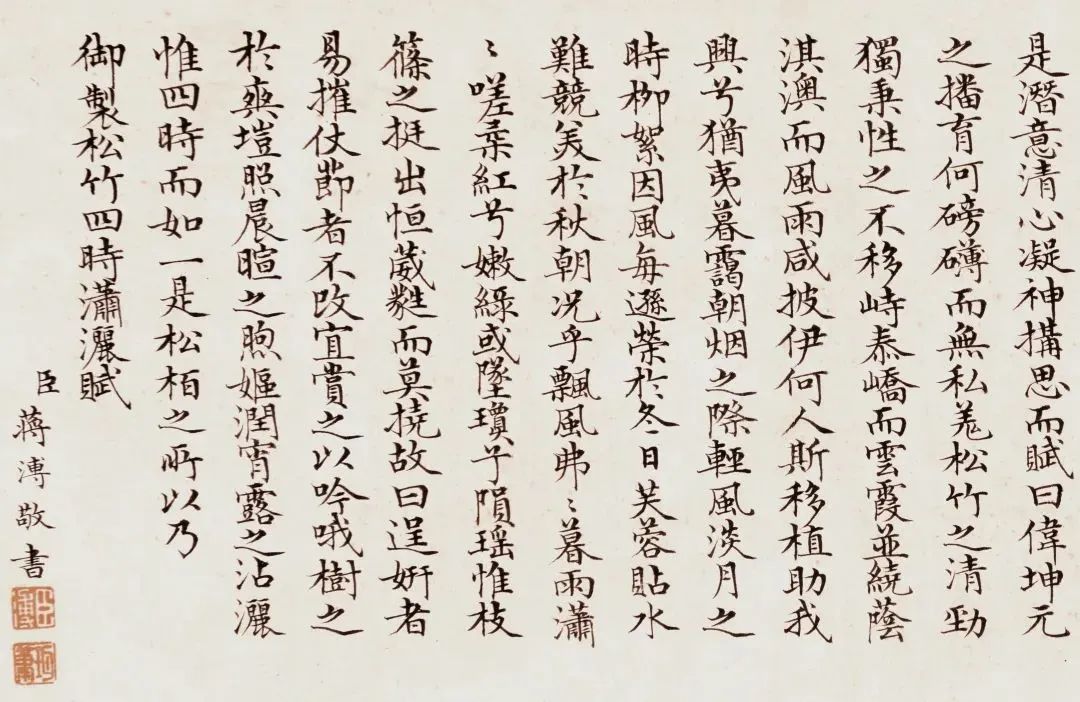 是潛意清心凝神搆思而賦曰偉坤元
之播育何磅礴而無私羗松竹之清勁
獨秉性之不移峙泰嶠而雲霞並繞蔭
淇澳而風雨咸披伊何人斯移植助我
興兮猶夷暮靄朝烟之際輕風淡月之
時柳絮因風每遜榮於冬日芙蓉貼水
難競美於秋朝况乎飄風弗〻暮雨瀟
〻嗟柔紅兮嫩綠或墜瓊兮隕瑶惟枝
篠之挺出恒葳蕤而莫撓故曰逞妍者
易摧仗節者不改宜賞之以吟哦樹之
於爽塏照晨暄之煦嫗潤宵露之沾灑
惟四時而如一是松栢之所以乃
御製松竹四時瀟灑賦
臣蔣溥敬書